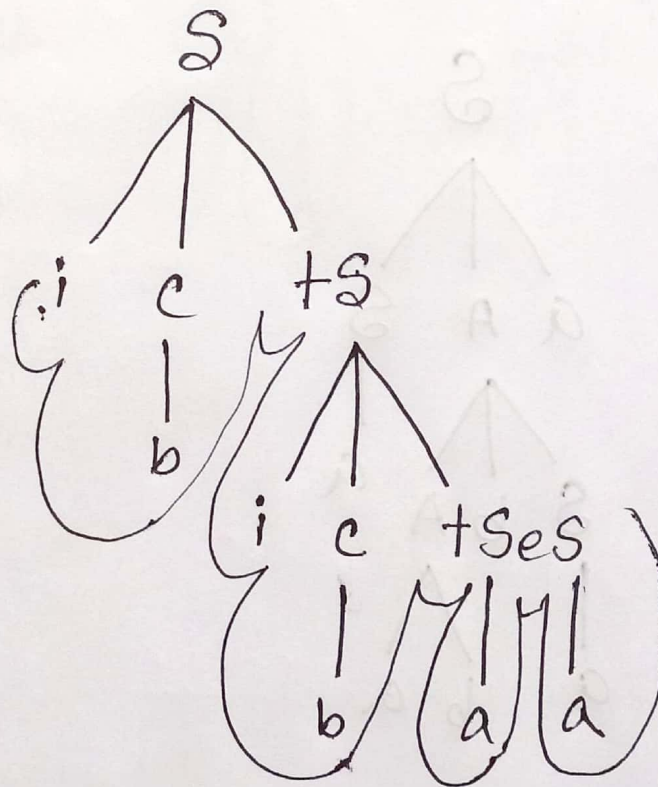 S
i c tS
b
i c tSeS
b a a